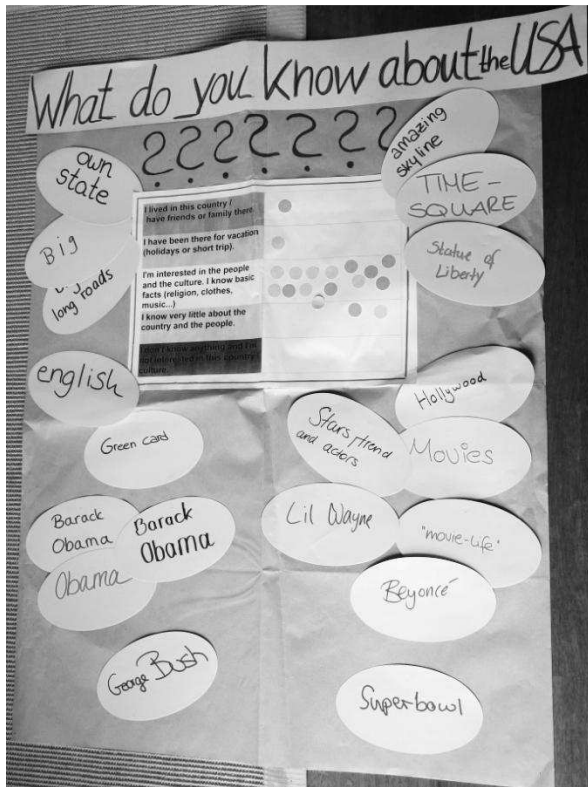 What do you know about the USA
? ? ? ? ? ? ?
own
state
Big
long roads
english
Green card
Barack
Obama
Barack
Obama
Obama
George Bush
I lived in this country /
have friends or family there.
I have been there for vacation
(holidays or short trip).
I'm interested in the people
and the culture. I know basic
facts (religion, clothes,
music...)
I know very little about the
country and the people.
I don't know anything and I'm
not interested in this country/
culture.
amazing
skyline
TIME-
SQUARE
Statue of
Liberty
Hollywood
Stars/trend
and actors
Movies
Lil Wayne
"movie-life"
Beyoncé
Superbowl